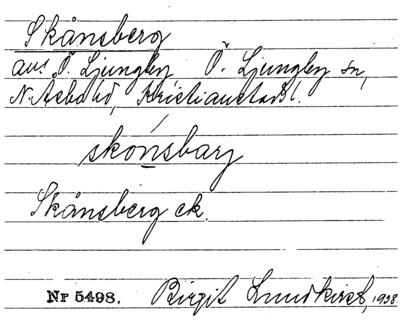 Skånsberg
avs. Ö. Ljungby Ö. Ljungby sn,
N. Åsbo hd, Kristianstads l.
skónsbarj
Skånsberg ek.
Nr 5498. Birgit Lundkvist, 1938.